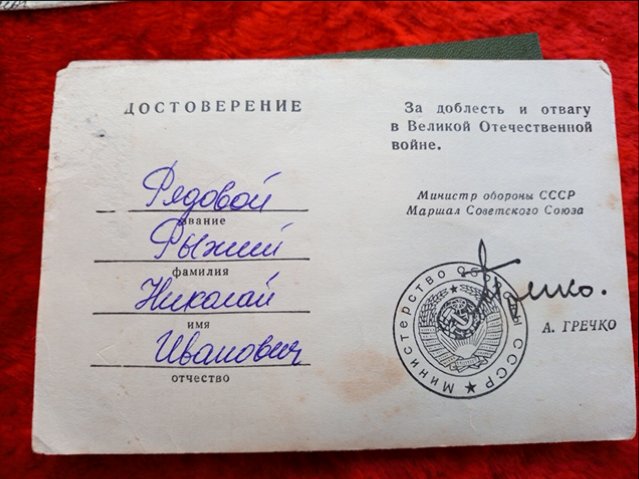 ДОСТОВЕРЕНИЕ
Рядовой
звание
Рыжий
фамилия
Николай
имя
Иванович
отчество
За доблесть и отвагу
в Великой Отечественной
войне.
Министр обороны СССР
Маршал Советского Союза
Гречко.
А. ГРЕЧКО
Министерство Обороны СССР